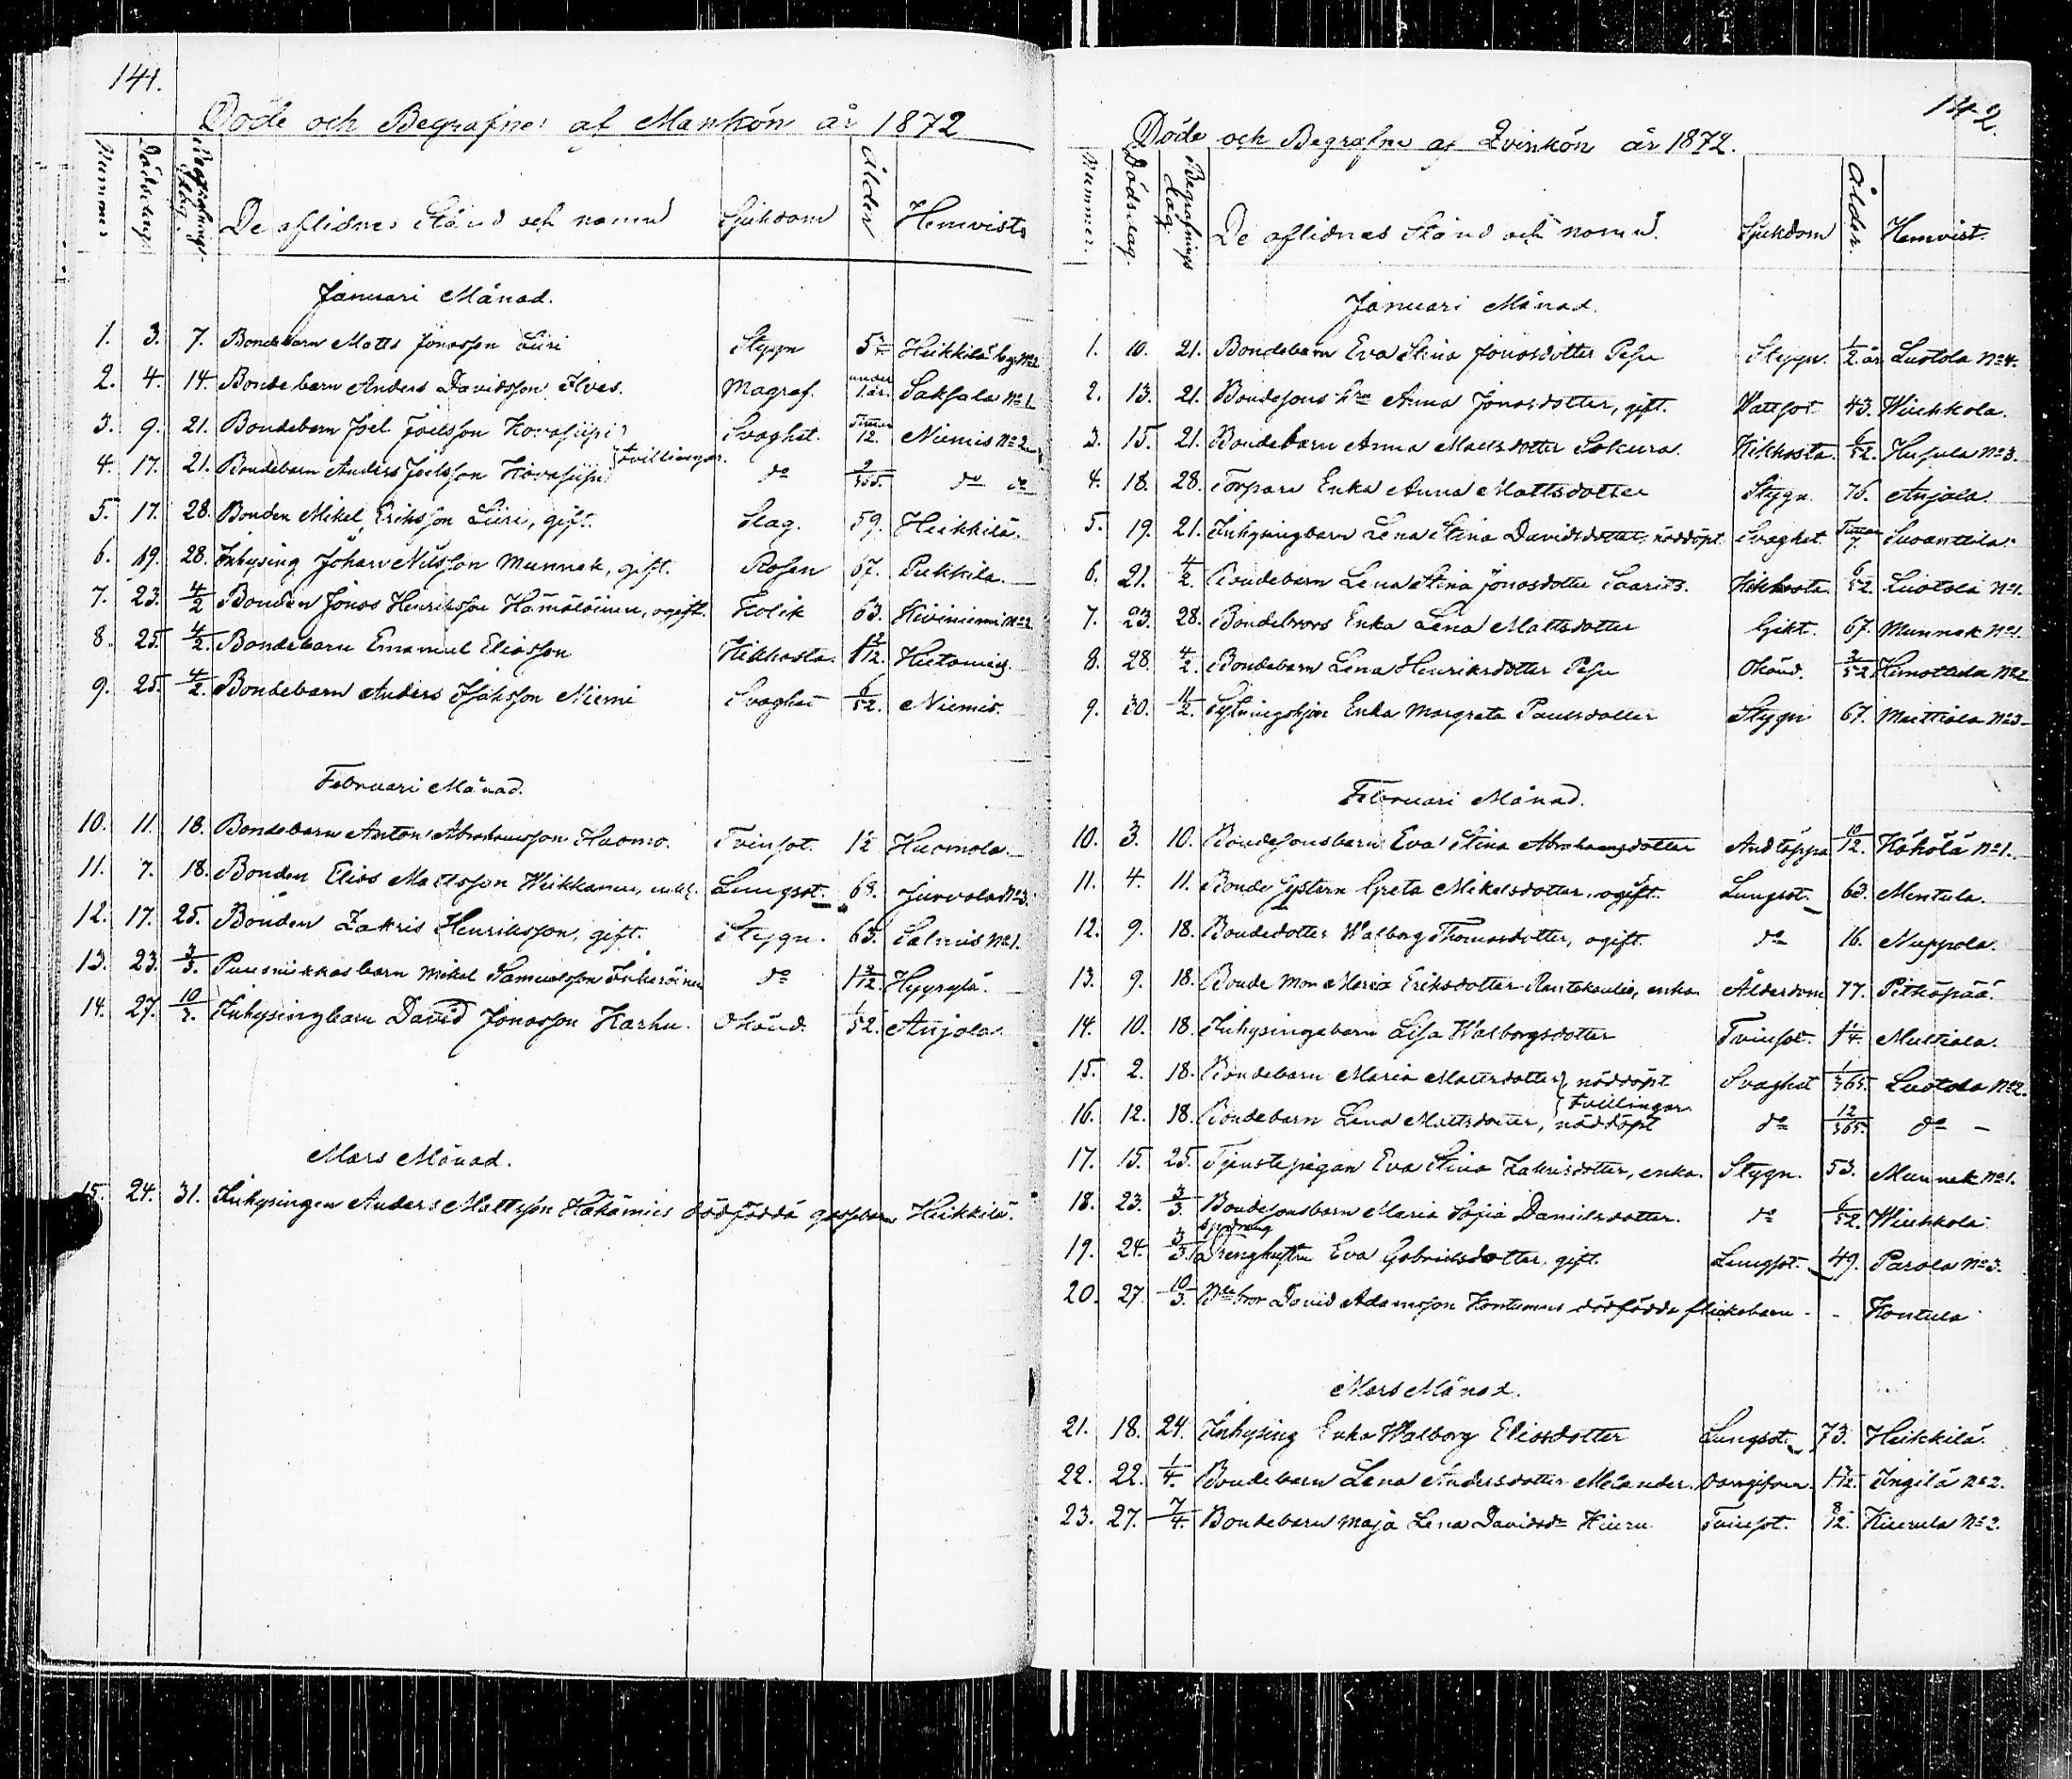 141.
Döde och Begrafne af Mankön år 1872
Nummer Dödsdag Begrafnings dag. De aflidnes Stånd och namn Sjukdom Ålder Hemvist
Januari Månad.
1. 3. 7. Bondebarn Matts Jonasson Liiri Stygn Heikkilä
2. 4. 14. Bondebarn Anders Davidsson Ilves. Magref. under 1 år. Saksala No 1
3. 9. 21. Bondebarn Joel Joelsson Svaghet. Timar 12. Niemis No 2
tvillingar.
4. 17. 21. Bondebarn Anders Joelsson do do do
5. 17. 28. Bonden Mikel Eriksson Liiri, gift. Slag. 59. Heikkilä.
6. 19. 28. Inhysing Johan Nilsson Munnek, gift. Rosen 67. Pukkila.
7. 23. 4/2 Bonden Jonas Henriksson Hämäläinen, ogift. Kolik 63. Kiviniemi No 2
8. 25. 4/2. Bondebarn Emanuel Eliasson Kikhosta.
9. 25. 4/2. Bondebarn Anders Isaksson Niemi Svaghet 6/52. Niemis.
Februari Månad.
10. 11. 18. Bondebarn Anton Abrahamsson Huomo. Tvinsot. Huomola.
11. 7. 18. Bonden Elias Mattsson Lungsot. Jurvala No 3.
12. 17. 25. Bonden Zakris Henriksson, gift. Stygn. 63. Salmis No 1.
13. 23. 3/3. barn Mikel Samuelsson do Hyyrylä.
14. 27. 10/3. Inhysingbarn David Jonasson Karhu. Okänd. 1/52. Anjala.
Mars Månad.
15. 24. 31. Inhysingen Anders Mattsson Häkämies dödfödda gossebarn Heikkilä.
142.
Döde och Begrafne af Qvinkön år 1872.
Nummer. Dödsdag. Begrafnings dag. De aflidnes Stånd och namn. Sjukdom Ålder. Hemvist.
Januari Månad.
1. 10. 21. Bondebarn Eva Stina Jonasdotter Pesu Stygn. 1/2 år Luotola No 4.
2. 13. 21. Bondesons hru Anna Jonasdotter, gift. Vattsot 43. Wirkkola.
3. 15. 21. Bondebarn Anna Mattsdotter Sokura. Kikhosta. 6/52. Husula No 3.
4. 18. 28. Torpare Enka Anna Mattsdotter Stygn 76. Anjala.
5. 19. 21. Inhysingbarn Lena Stina Davidsdotter, nöddöpt. Svaghet. Timar 7.
6. 21. 4/2. Bondebarn Lena Stina Jonasdotter Kikhosta. 6/52. Luotola No 1.
7. 23. 28. Bondebrors Enka Lena Mattsdotter Gikt. 67. Munnek No 1.
8. 28. 4/2. Bondebarn Lena Henriksdotter Pesu Okänd.
9. 30. 11/2. Sytningshjon Enka Margreta Paulsdotter Stygn 67. Marttila No 3
Februari Månad.
10. 3. 10. Bondesonsbarn Eva Stina Abrahamsdotter Andtäppa 10/12. Käkölä No 1.
11. 4. 11. Bonde Systern Greta Mikelsdotter, ogift. Lungsot. 63. Mentula.
12. 9. 18. Bondedotter Walborg Thomasdotter, ogift. do 16. Nuppola.
13. 9. 18. Bonde Mor Maria Eriksdotter enka Ålderdom 77. Pitkäpää.
14. 10. 18. Inhysingebarn Lisa Walborgsdotter Tvinsot. Multiala.
15. 2. 18. Bondebarn Maria Mattsdotter, nöddöpt Svaghet 1/365. Luotola No 2.
tvillingar.
16. 12. 18. Bondebarn Lena Mattsdotter, nöddöpt do 12/365. do -
17. 15. 25. Tjenstepigan Eva Stina Zakrisdotter, enka. Stygn. 53. Munnek No 1.
18. 23. 3/3. Bondesonsbarn Maria Sofia Danielsdotter. do 6/52. Wirkkola.
19. 24. 3/3. Drenghustru Eva Gabrielsdotter, gift. Lungsot. 49. Parola No 3.
20. 27. 10/3. Bde bror David Adamsson Kontunus dödfödda flickebarn - - Kontula
Mars Månad.
21. 18. 24. Inhysing Enka Walborg Eliasdotter Lungsot. 73. Heikkilä.
22. 22. 1/4. Bondebarn Lena Andersdotter Melander. Ingilä No 2.
23. 27. 7/4. Bondebarn Maja Lena Davidsdr Kiuru Tvinsot. 8/12. Kiurula No 2.